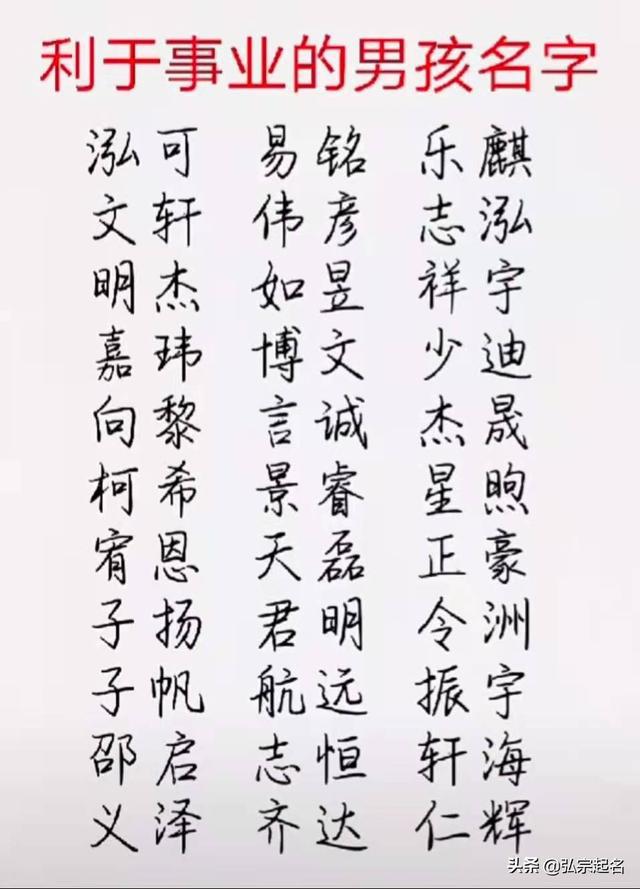 利于事业的男孩名字
泓可 易铭 乐麒
文轩 伟彦 志泓
明杰 如昱 祥宇
嘉玮 博文 少迪
向黎 言诚 杰晟
柯希 景睿 星煦
宥恩 天磊 正豪
子扬 君明 令洲
子帆 航远 振宇
邵启 志恒 轩海
义泽 齐达 仁辉
头条 @弘宗起名